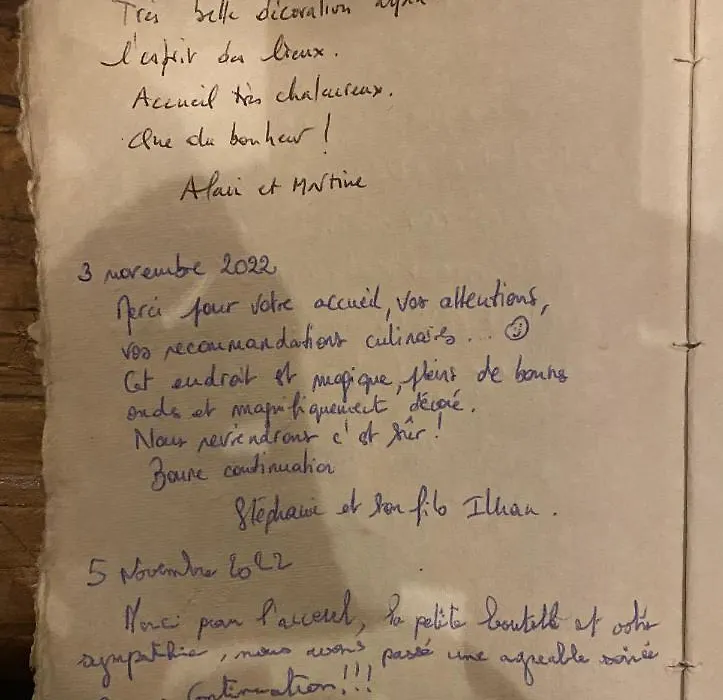 Très belle décoration
l'esprit des lieux.
Accueil très chaleureux.
Que du bonheur !
Alain et Martine
3 novembre 2022
Merci pour votre accueil, vos attentions,
vos recommandations culinaires... ☺
Cet endroit est magique, pleins de bonnes
ondes et magnifiquement décoré.
Nous reviendrons c'est sûr !
Bonne continuation
Stéphanie et son fils Ilhan.
5 Novembre 2022
Merci pour l'accueil, la petite bouteille et votre
sympathie, nous avons passé une agréable soirée
Continuation!!!